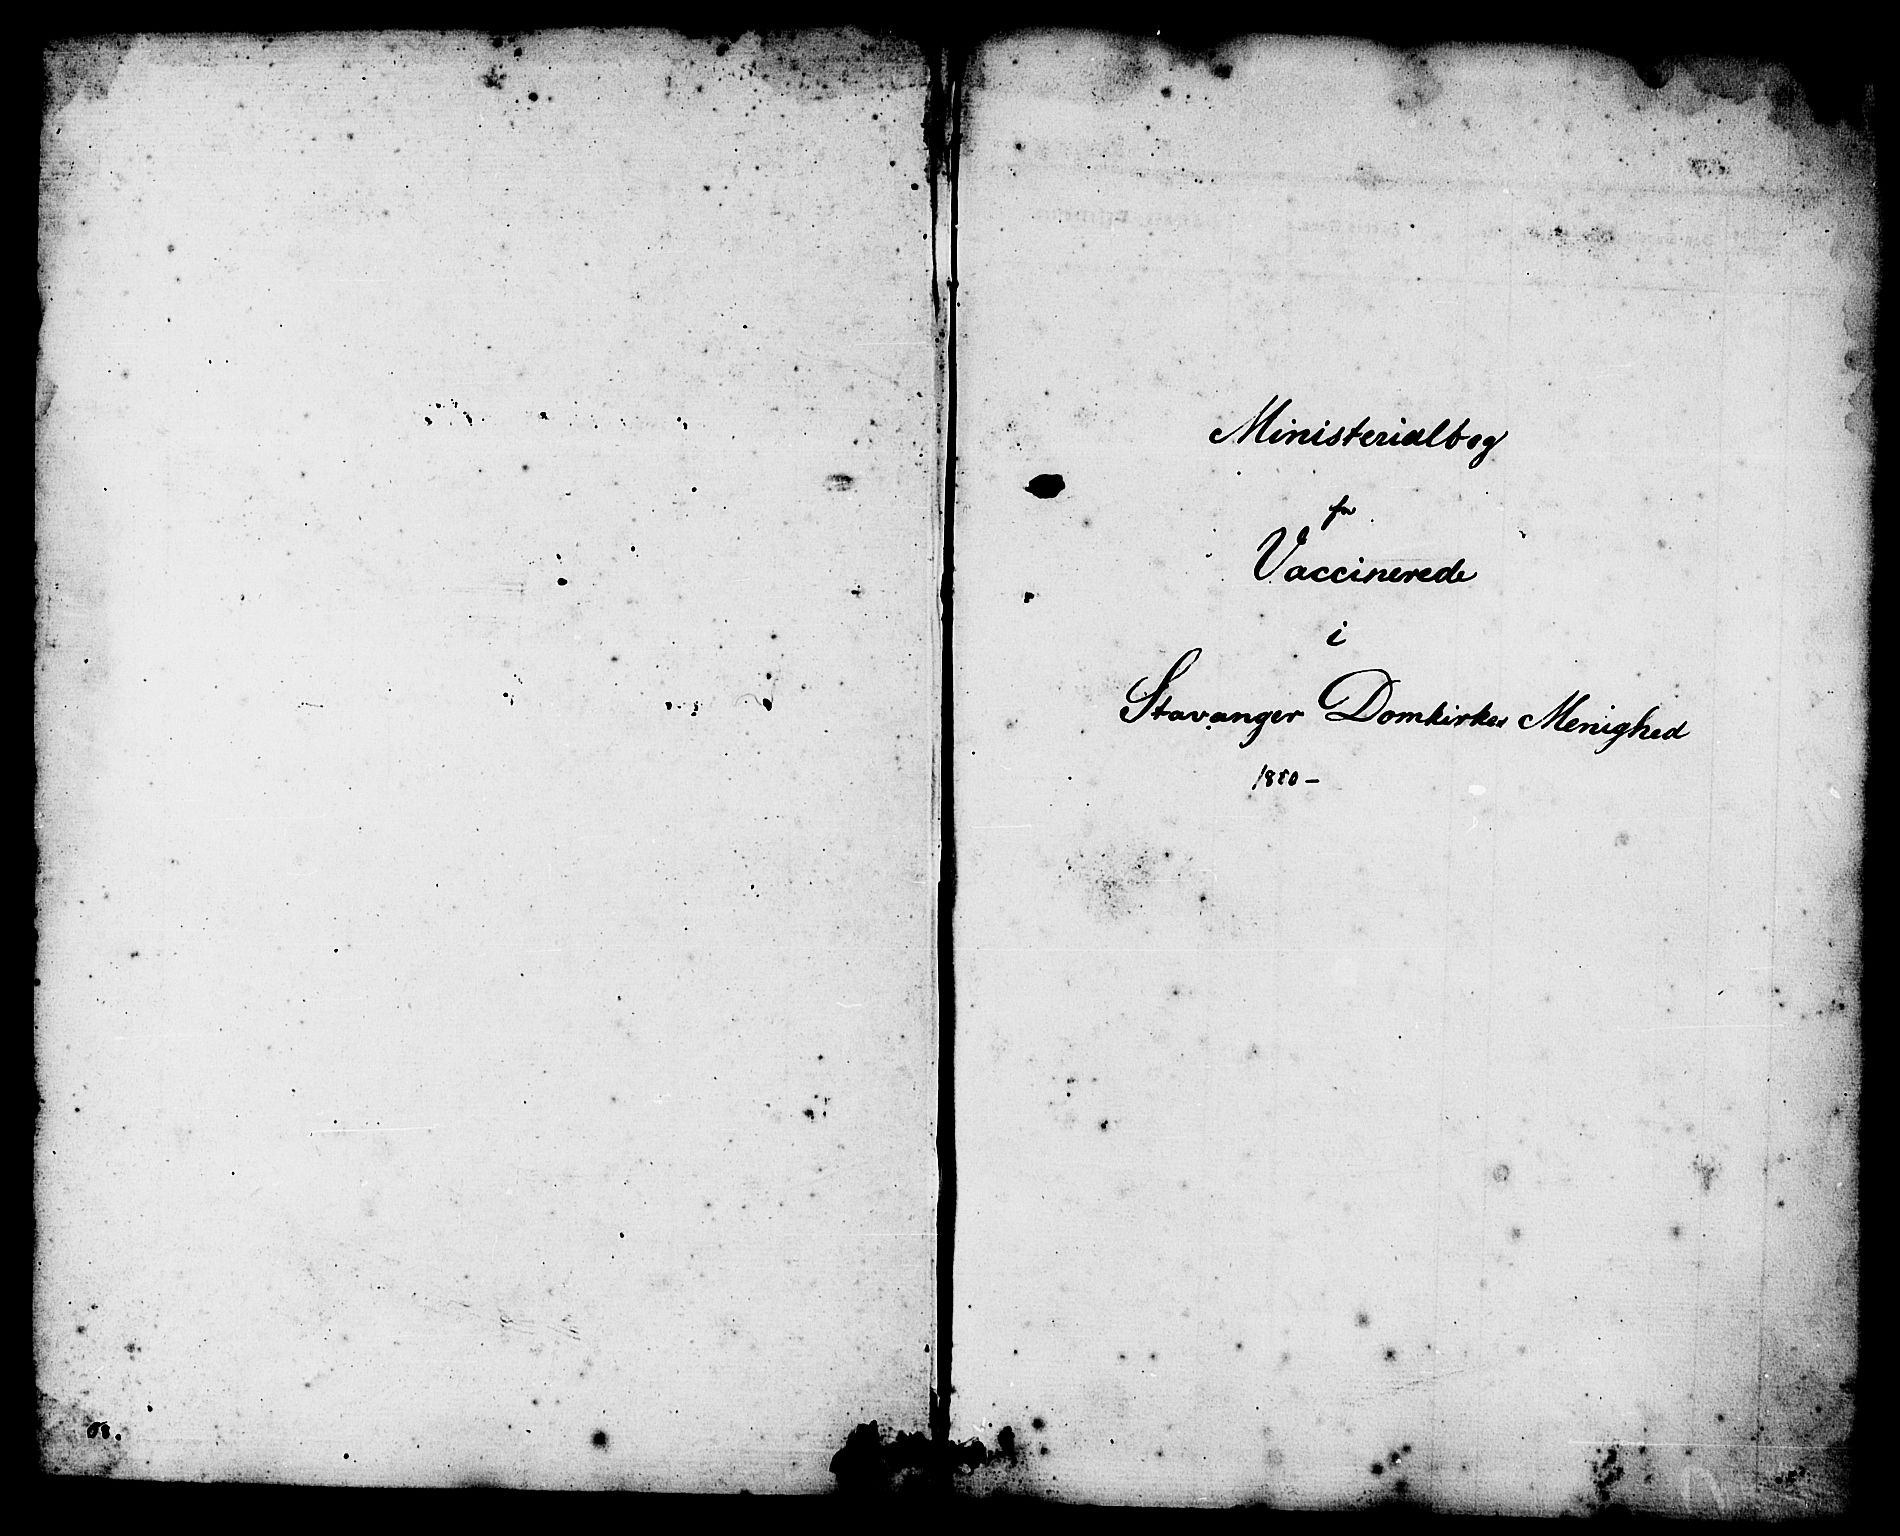 Ministerialbog
for
Vaccinerede
i
Stavanger Domkirkes Menighed
1850 —